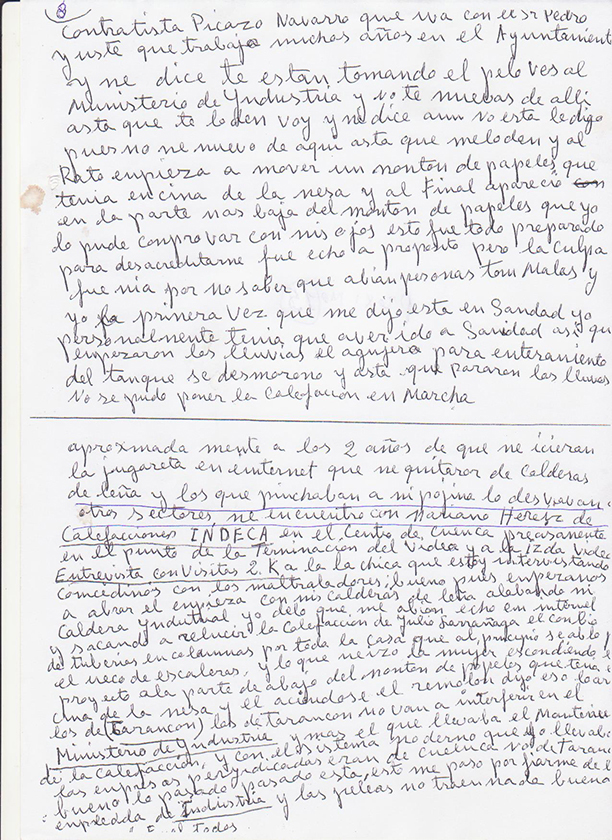 8
Contratista Picazo Navarro que iva con el Sr Pedro
y uste que trabajo muchos años en el Ayuntamient
y ne dice te estan tomando el pelo ves al
Ministerio de Yndustria y no te muevas de alli
asta que te lo den voy y ne dice aun no esta le digo
pues no ne muevo de aqui asta que me lo den y al
Rato enpieza a mover un nonton de papeles que
tenia encina de la nesa y al Final aparecio
en la parte nas baja del monton de papeles que yo
lo pude conprovar con mis ojos esto fue todo preparado
para desacreditarne fue echo a proposito pero la culpa
fue nia por no saber que abian personas tom Malas y
yo la primera vez que me dijo esta en Sandad yo
personalmente tenia que aver ido a Sanidad asi que
enpezaron las lluvias el agujero para enteramiento
del tanque se desmorono y asta que pararon las lluvias
No se pudo poner la Calefacion en Marcha
aproximada mente a los 2 años de que ne icieran
la jugareta en enternet que ne quitaron de Calderas
de leña y los que pinchaban a ni pojina lo desviavan
otros sectores ne encuentro con Mariano Heresz de
Calefacciones INDECA en el Centro de Cuenca precisanente
en el punto de la Terminacion del Video y a la Izda Video
Entrevista con Visitas 2.K a la la chica que estoy intervistando
Comedinos con los multraladores; bueno pues enpezanos
a ablar el enpieza con mis calderas de leña alabando ni
Caldera Yndutrial yo de lo que me abian echo en internet
y sacando a relucir la Calefaccion de Julio Larrañaga el conbio
de tuberias en columnas por toda la casa que al principio se ablo p
el ueco de escaleras, y lo que ne izo la mujer escondiendo e
proyesto a la parte de abajo del nonton de papeles que tenia e
cina de la nesa y el aciendose el remolon dijo eso lo ar
los de (Tarancon) los de tarancon no van a interferir en el
Ministerio de Yndustria y mas el que llevaba el Mantenie
de la Calefaccion, y con el sistema moderno que yo llevab
las enpresas perjudicadas eran de cuenca no de Taran
bueno lo pasado pasado esta, esto me paso por fiarme de l
enpleada de Industria y las peleas no traen nada bueno